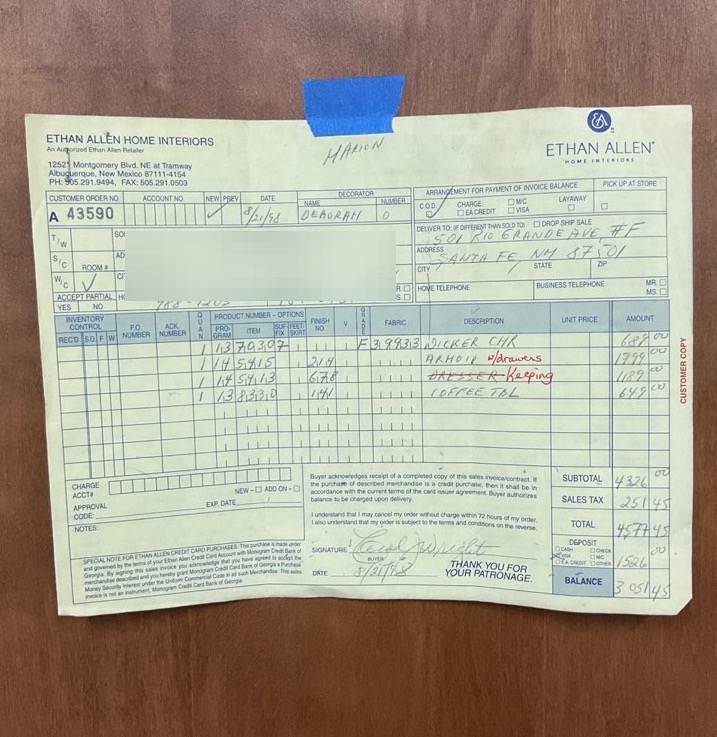 MARION
ETHAN ALLEN HOME INTERIORS
An Authorized Ethan Allen Retailer
12521 Montgomery Blvd. NE at Tramway
Albuquerque, New Mexico 87111-4154
PH: 505.291.9494, FAX: 505.291.0503
EA
ETHAN ALLEN®
HOME INTERIORS
CUSTOMER ORDER NO. ACCOUNT NO. NEW PREV. DATE DECORATOR NAME NUMBER
A 43590 8/21/98 DEBORAH 0
ARRANGEMENT FOR PAYMENT OF INVOICE BALANCE PICK UP AT STORE
C O D CHARGE: M/C LAYAWAY
EA CREDIT VISA
DELIVER TO: IF DIFFERENT THAN SOLD TO: DROP SHIP SALE
501 RIO GRANDE AVE, #F
ADDRESS
SANTA FE, NM 87501
CITY STATE ZIP
HOME TELEPHONE BUSINESS TELEPHONE MR. MS.
T/W
S/C ROOM #
W/C
ACCEPT PARTIAL
YES NO
INVENTORY CONTROL P.O. NUMBER ACK. NUMBER QUAN PRODUCT NUMBER - OPTIONS FINISH NO. V GRADE FABRIC DESCRIPTION UNIT PRICE AMOUNT
REC'D S.O. F W PRO-GRAM ITEM SUF-FIX FEET/SKRT
1 13 7030 7 F 39933 WICKER CHR 689 00
1 14 5415 214 ARMOIR w/drawers 1799 00
1 14 5413 678 DRESSER - Keeping 1189 00
1 13 8330 141 COFFEE TBL 649 00
CUSTOMER COPY
CHARGE ACCT#
NEW - ADD ON -
APPROVAL CODE: EXP. DATE
NOTES:
SPECIAL NOTE FOR ETHAN ALLEN CREDIT CARD PURCHASES: This purchase is made under
and governed by the terms of your Ethan Allen Credit Card Account with Monogram Credit Bank of
Georgia. By signing this sales invoice you acknowledge that you have agreed to accept the
merchandise described and you hereby grant Monogram Credit Card Bank of Georgia a Purchase
Money Security Interest under the Uniform Commercial Code in all such Merchandise. This sales
invoice is not an instrument, Monogram Credit Card Bank of Georgia.
Buyer acknowledges receipt of a completed copy of this sales invoice/contract. If
the purchase of described merchandise is a credit purchase, then it shall be in
accordance with the current terms of the card issuer agreement. Buyer authorizes
balance to be charged upon delivery.
I understand that I may cancel my order without charge within 72 hours of my order.
I also understand that my order is subject to the terms and conditions on the reverse.
SIGNATURE Carol Wright
BUYER
DATE 8/21/98
THANK YOU FOR
YOUR PATRONAGE.
SUBTOTAL 4326 00
SALES TAX 251 45
TOTAL 4577 45
DEPOSIT
CASH CHECK
VISA M/C
E.A. CREDIT OTHER 1526 00
BALANCE 3051 45